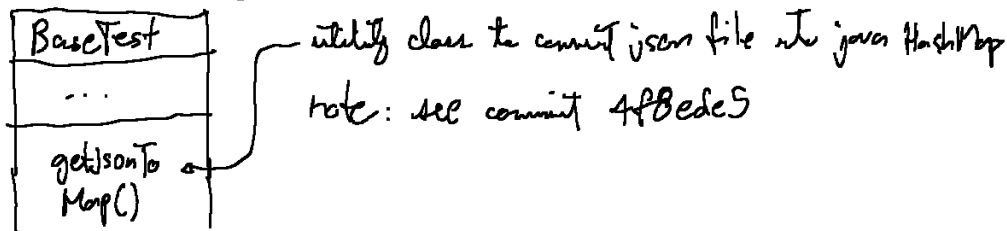 BaseTest
...
getJsonTo
Map()
utility class to convert json file into java HashMap
note: see commit 4f8ede5